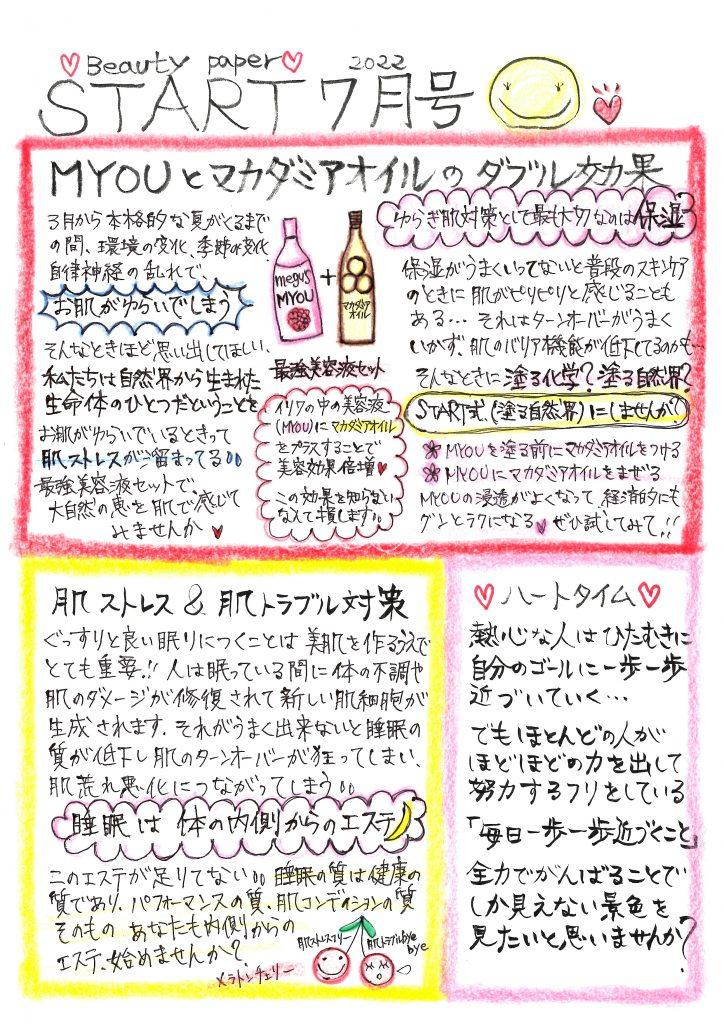 Beauty paper 2022
START 7月号
MYOUとマカダミアオイルのダブル効果
3月から本格的な夏がくるまで
の間、環境の変化、季節の変化
自律神経の乱れで、
お肌がゆらいでしまう
そんなときほど思い出してほしい、
私たちは自然界から生まれた
生命体のひとつだということを
お肌がゆらいでいるときって
肌ストレスが溜まってる
最強美容液セットで、
大自然の恵を肌で感じて
みませんか
megus
MYOU
+
マカダミア
オイル
最強美容液セット
イリワの中の美容液
(MYOU)にマカダミアオイル
をプラスすることで
美容効果倍増
この効果を知らない
なんて損します
ゆらぎ肌対策として最も大切なのは保湿
保湿がうまくいってないと普段のスキンケア
のときに肌がピリピリと感じることも
ある… それはターンオーバーがうまく
いかず、肌のバリア機能が低下してるのかも…
そんなときに塗る化学?塗る自然界?
START式(塗る自然界)にしませんか?
MYOUを塗る前にマカダミアオイルをつける
MYOUにマカダミアオイルをまぜる
MYOUの浸透がよくなって、経済的にも
グンとラクになる ぜひ試してみて!!
肌ストレス&肌トラブル対策
ぐっすりと良い眠りにつくことは美肌を作るうえで
とても重要!!人は眠っている間に体の不調や
肌のダメージが修復されて新しい肌細胞が
生成されます。それがうまく出来ないと睡眠の
質が低下し肌のターンオーバーが狂ってしまい、
肌荒れ悪化につながってしまう
睡眠は体の内側からのエステ
このエステが足りてない 睡眠の質は健康の
質であり、パフォーマンスの質、肌コンディションの質
そのもの あなたも内側からの
エステ、始めませんか?
肌ストレスフリー
肌トラブルbye
bye
メラトンチェリー
ハートタイム
熱心な人はひたむきに
自分のゴールに一歩一歩
近づいていく…
でもほとんどの人が
ほどほどの力を出して
努力するフリをしている
「毎日一歩一歩近づくこと」
全力でがんばることで
しか見えない景色を
見たいと思いませんか?